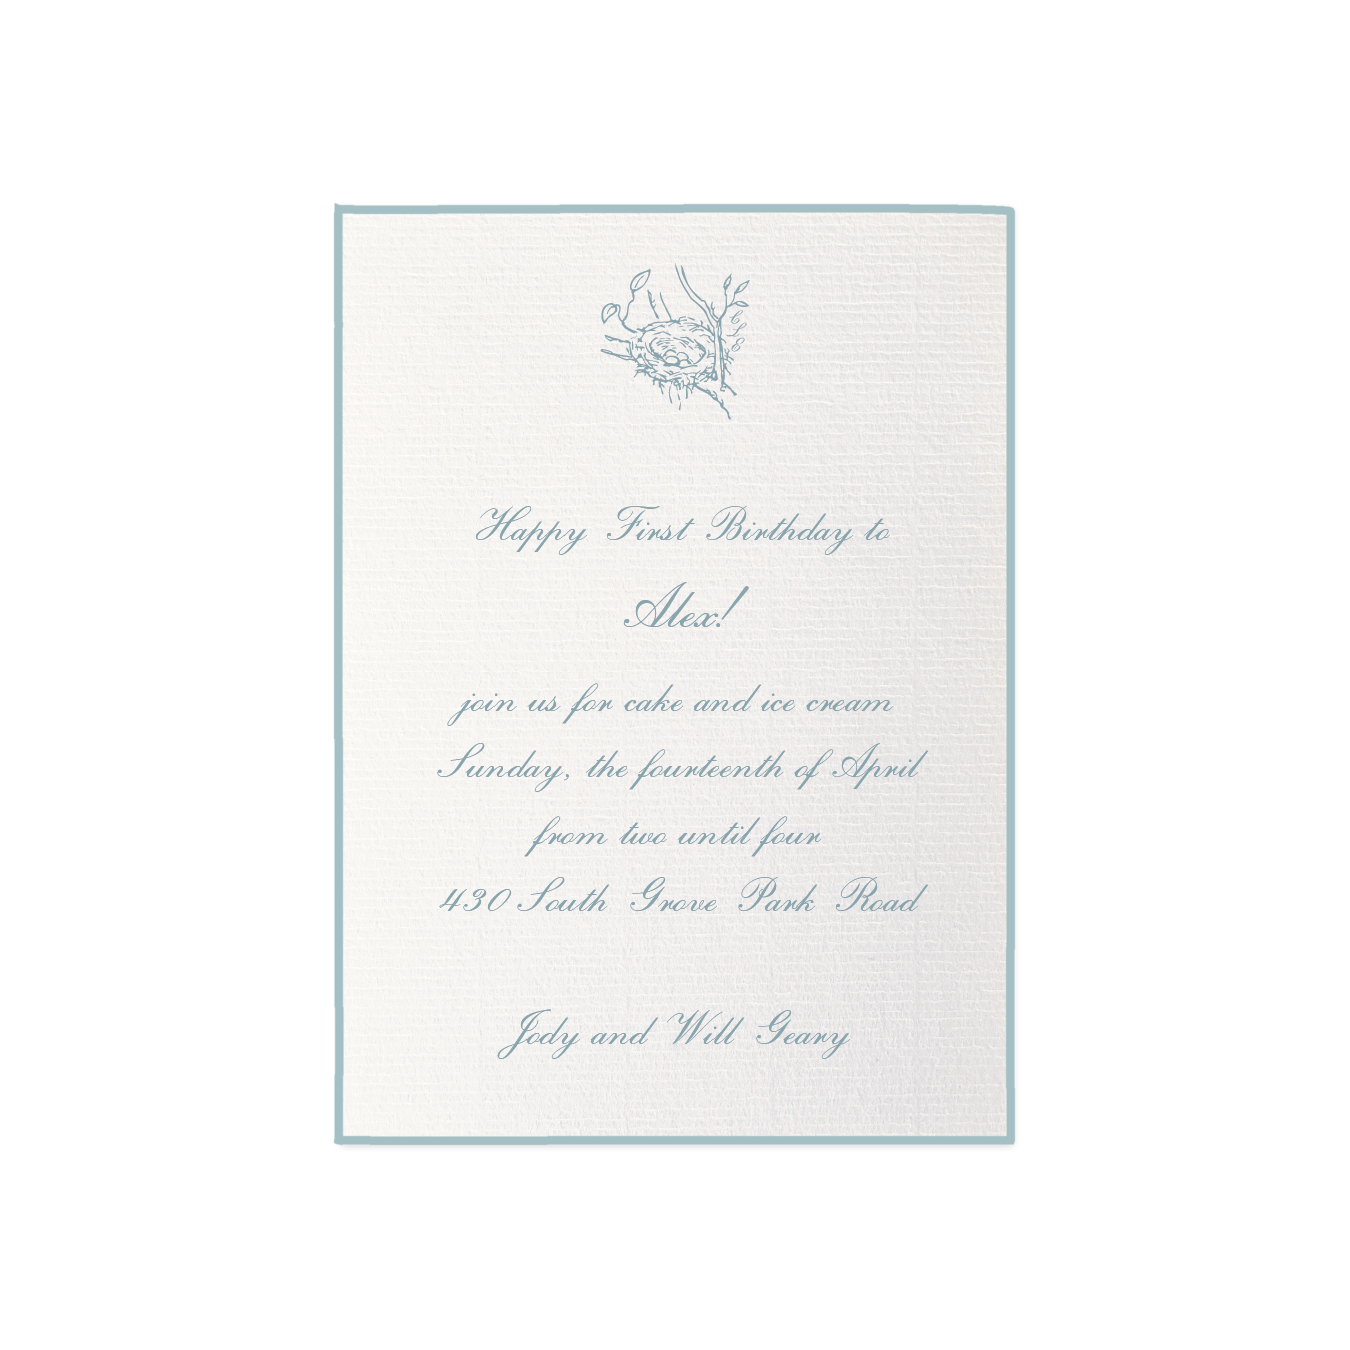 Happy First Birthday to
Alex!
join us for cake and ice cream
Sunday, the fourteenth of April
from two until four
430 South Grove Park Road
Jody and Will Geary